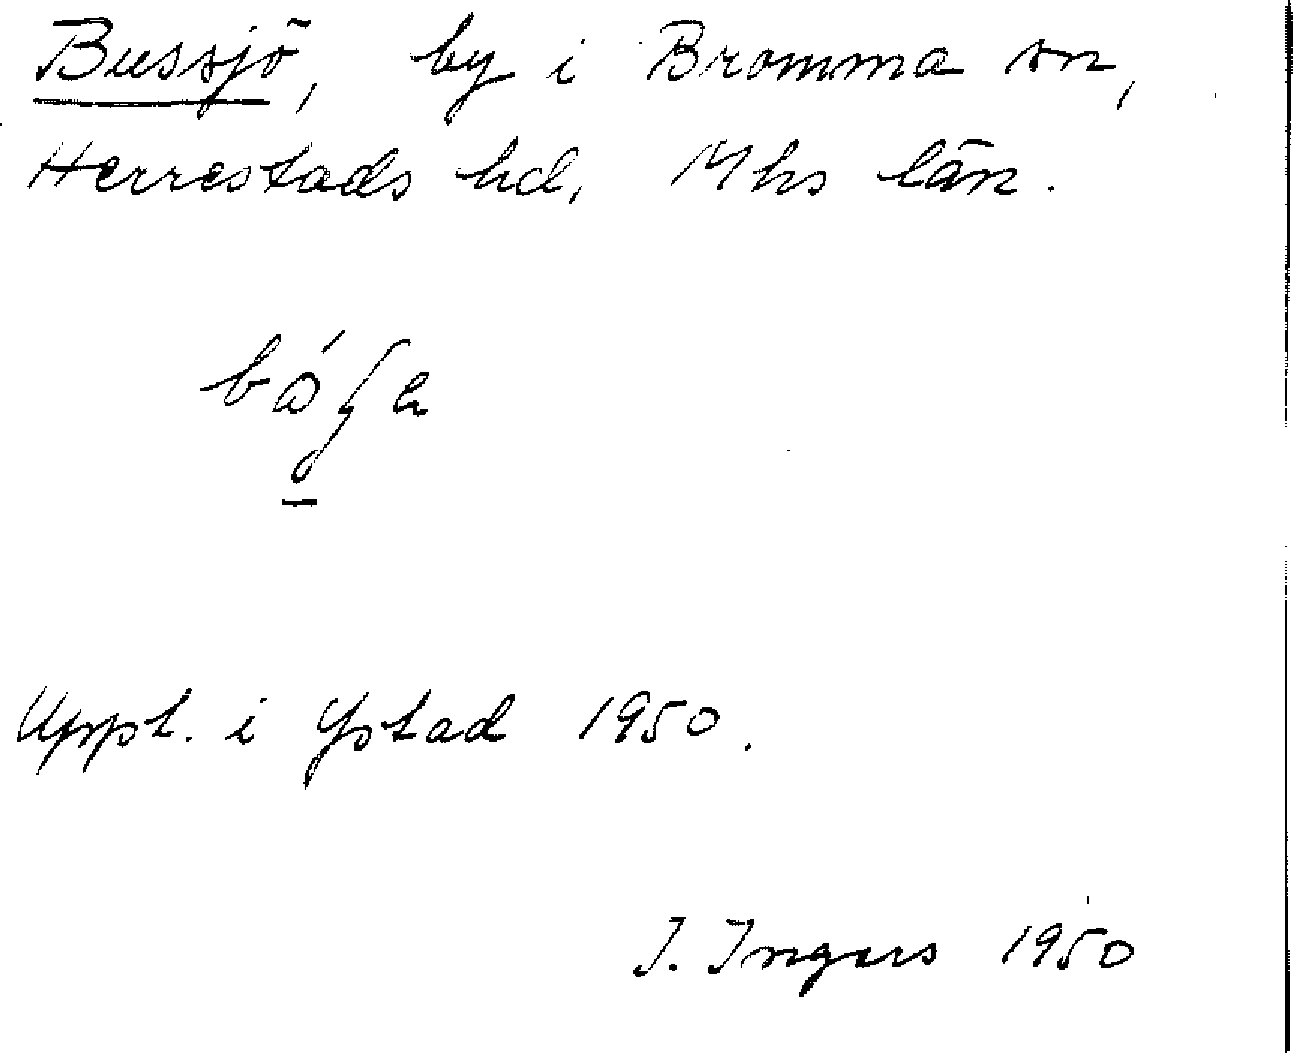 Bussjö, by i Bromma sn,
Herrestads hd, Mhs län.
Uppt. i Ystad 1950.
I. Ingers 1950